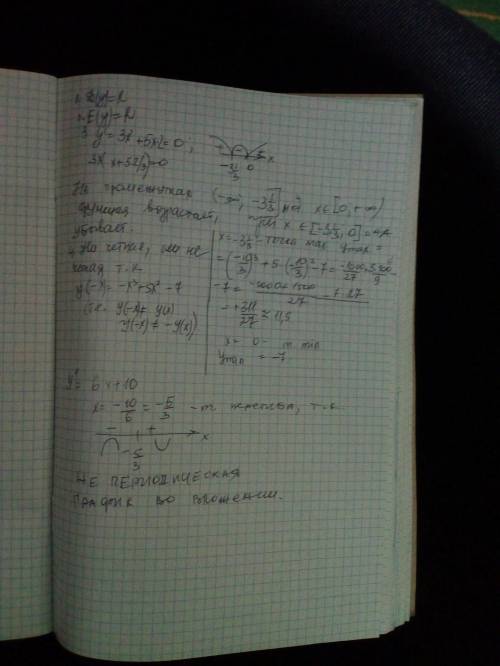 1. D(y)=R
2. E(y)=R
3 y' = 3x² + 5x·2=0;
3x(x+3⅓)=0
+ - + x
-3⅓ 0
На промежутках (-∞, -3⅓] и x∈[0, +∞)
функция возрастает, при x∈[-3⅓, 0] =>
убывает.
4 Не четная, не
чётная т.к.
y(-x) = -x³+5x²-7
(т.е. y(-x)≠ y(x)
y(-x) ≠ -y(x))
x=-3⅓ - точка max ymax =
=(-10/3)³ + 5·(-10/3)² -7 = -1000/27 + 500/9
-7 = (-1000+1500-7·27)/27
= +311/27 ≈ 11,5
x= 0 - т. min
ymin = -7
y''= 6x+10
x= -10/6 = -5/3 - т. перегиба, т.к.
- + x
-5/3
НЕ ПЕРИОДИЧЕСКАЯ
ГРАФИК ВО ВЛОЖЕНИИ.